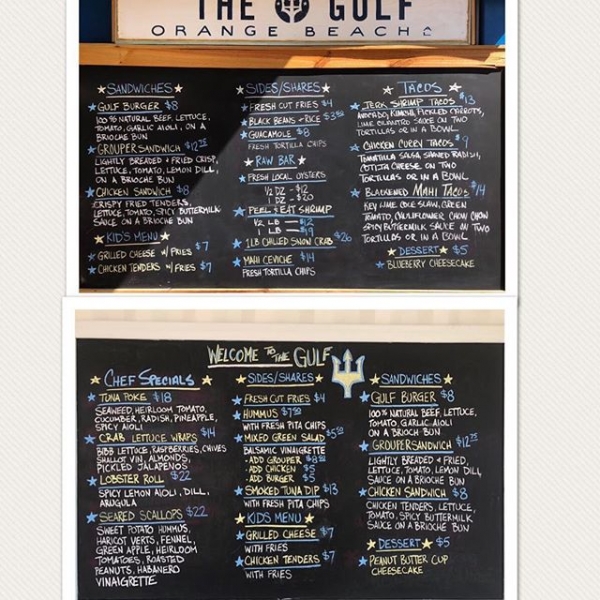 THE GULF
ORANGE BEACH
SANDWICHES
GULF BURGER $8
100% NATURAL BEEF, LETTUCE,
TOMATO, GARLIC AIOLI, ON A
BRIOCHE BUN
GROUPER SANDWICH $12.75
LIGHTLY BREADED + FRIED CRISP,
LETTUCE, TOMATO, LEMON DILL,
ON A BRIOCHE BUN
CHICKEN SANDWICH $8
CRISPY FRIED TENDERS,
LETTUCE, TOMATO, SPICY BUTTERMILK
SAUCE ON A BRIOCHE BUN
KID'S MENU
GRILLED CHEESE W/ FRIES $7
CHICKEN TENDERS W/ FRIES $7
SIDES/SHARES
FRESH CUT FRIES $4
BLACK BEANS + RICE $3.50
GUACAMOLE $8
FRESH TORTILLA CHIPS
RAW BAR
FRESH LOCAL OYSTERS
1/2 DZ - $12
1 DZ - $20
PEEL + EAT SHRIMP
1/2 LB - $12
1 LB - $19
1LB CHILLED SNOW CRAB $26
MAHI CEVICHE $14
FRESH TORTILLA CHIPS
TACOS
JERK SHRIMP TACOS $13
AVOCADO, KIMCHI, PICKLED CARROTS,
LIME CILANTRO SAUCE ON TWO
TORTILLAS OR IN A BOWL
CHICKEN CURRY TACOS $9
TOMATILLO SALSA, SHAVED RADISH,
COTIJA CHEESE, ON TWO
TORTILLAS OR IN A BOWL
BLACKENED MAHI TACOS $14
KEY LIME COLE SLAW, GREEN
TOMATO, CAULIFLOWER CHOW CHOW
SPICY BUTTERMILK SAUCE ON TWO
TORTILLAS OR IN A BOWL
DESSERT $5
BLUEBERRY CHEESECAKE
WELCOME TO THE GULF
CHEF SPECIALS
TUNA POKE $18
SEAWEED, HEIRLOOM TOMATO,
CUCUMBER, RADISH, PINEAPPLE,
SPICY AIOLI
CRAB LETTUCE WRAPS $14
BIBB LETTUCE, RASPBERRIES, CHIVES
SHALLOT VIN, ALMONDS,
PICKLED JALAPENOS
LOBSTER ROLL $22
SPICY LEMON AIOLI, DILL,
ARUGULA
SEARED SCALLOPS $22
SWEET POTATO HUMMUS,
HARICOT VERTS, FENNEL,
GREEN APPLE, HEIRLOOM
TOMATOES, ROASTED
PEANUTS, HABANERO
VINAIGRETTE
SIDES/SHARES
FRESH CUT FRIES $4
HUMMUS $7.50
WITH FRESH PITA CHIPS
MIXED GREEN SALAD $5.50
BALSAMIC VINAIGRETTE
- ADD GROUPER $8.50
- ADD CHICKEN $5
- ADD BURGER $5
SMOKED TUNA DIP $13
WITH FRESH PITA CHIPS
KID'S MENU
GRILLED CHEESE $7
WITH FRIES
CHICKEN TENDERS $7
WITH FRIES
SANDWICHES
GULF BURGER $8
100% NATURAL BEEF, LETTUCE,
TOMATO, GARLIC AIOLI
ON A BRIOCHE BUN
GROUPER SANDWICH $12.75
LIGHTLY BREADED + FRIED,
LETTUCE, TOMATO, LEMON DILL,
SAUCE ON A BRIOCHE BUN
CHICKEN SANDWICH $8
CHICKEN TENDERS, LETTUCE,
TOMATO, SPICY BUTTERMILK
SAUCE ON A BRIOCHE BUN
DESSERT $5
PEANUT BUTTER CUP
CHEESECAKE